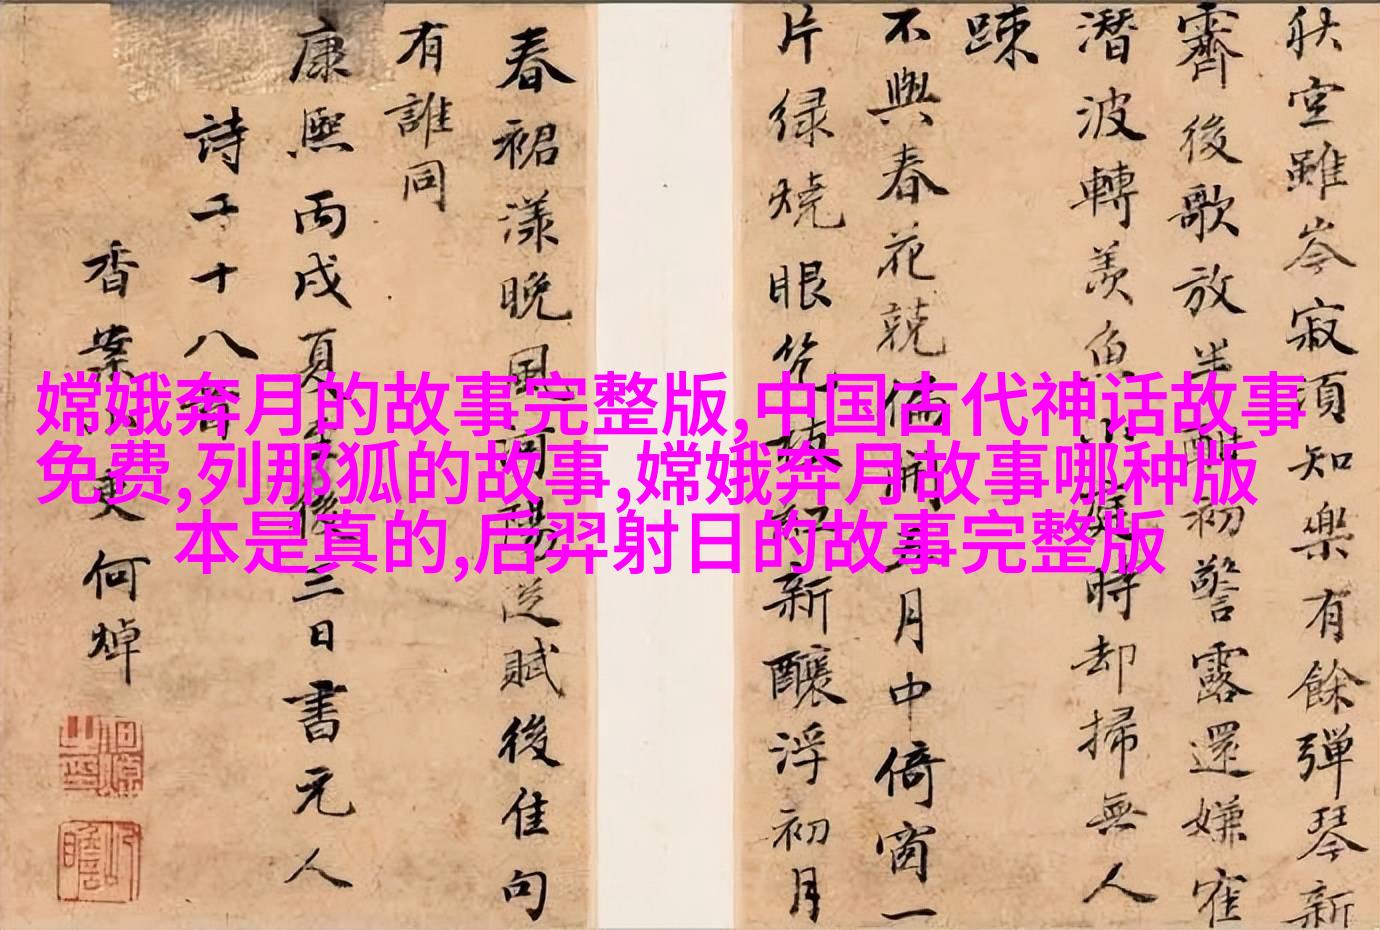 秋空雖岑寂須知樂有餘彈琴新
霽後歌放半酣初警露還嫌窄
潛波轉羨魚時却掃無人
踈
不與春花競月中倚窗一
片緑燒眼新釀浮初月
春裙漾晚風賦後佳句
有誰同
康熙丙戌夏三日書元人
詩二十八首
香案吏何焯
嫦娥奔月的故事完整版,中国古代神话故事
免费,列那狐的故事,嫦娥奔月故事哪种版
本是真的,后羿射日的故事完整版